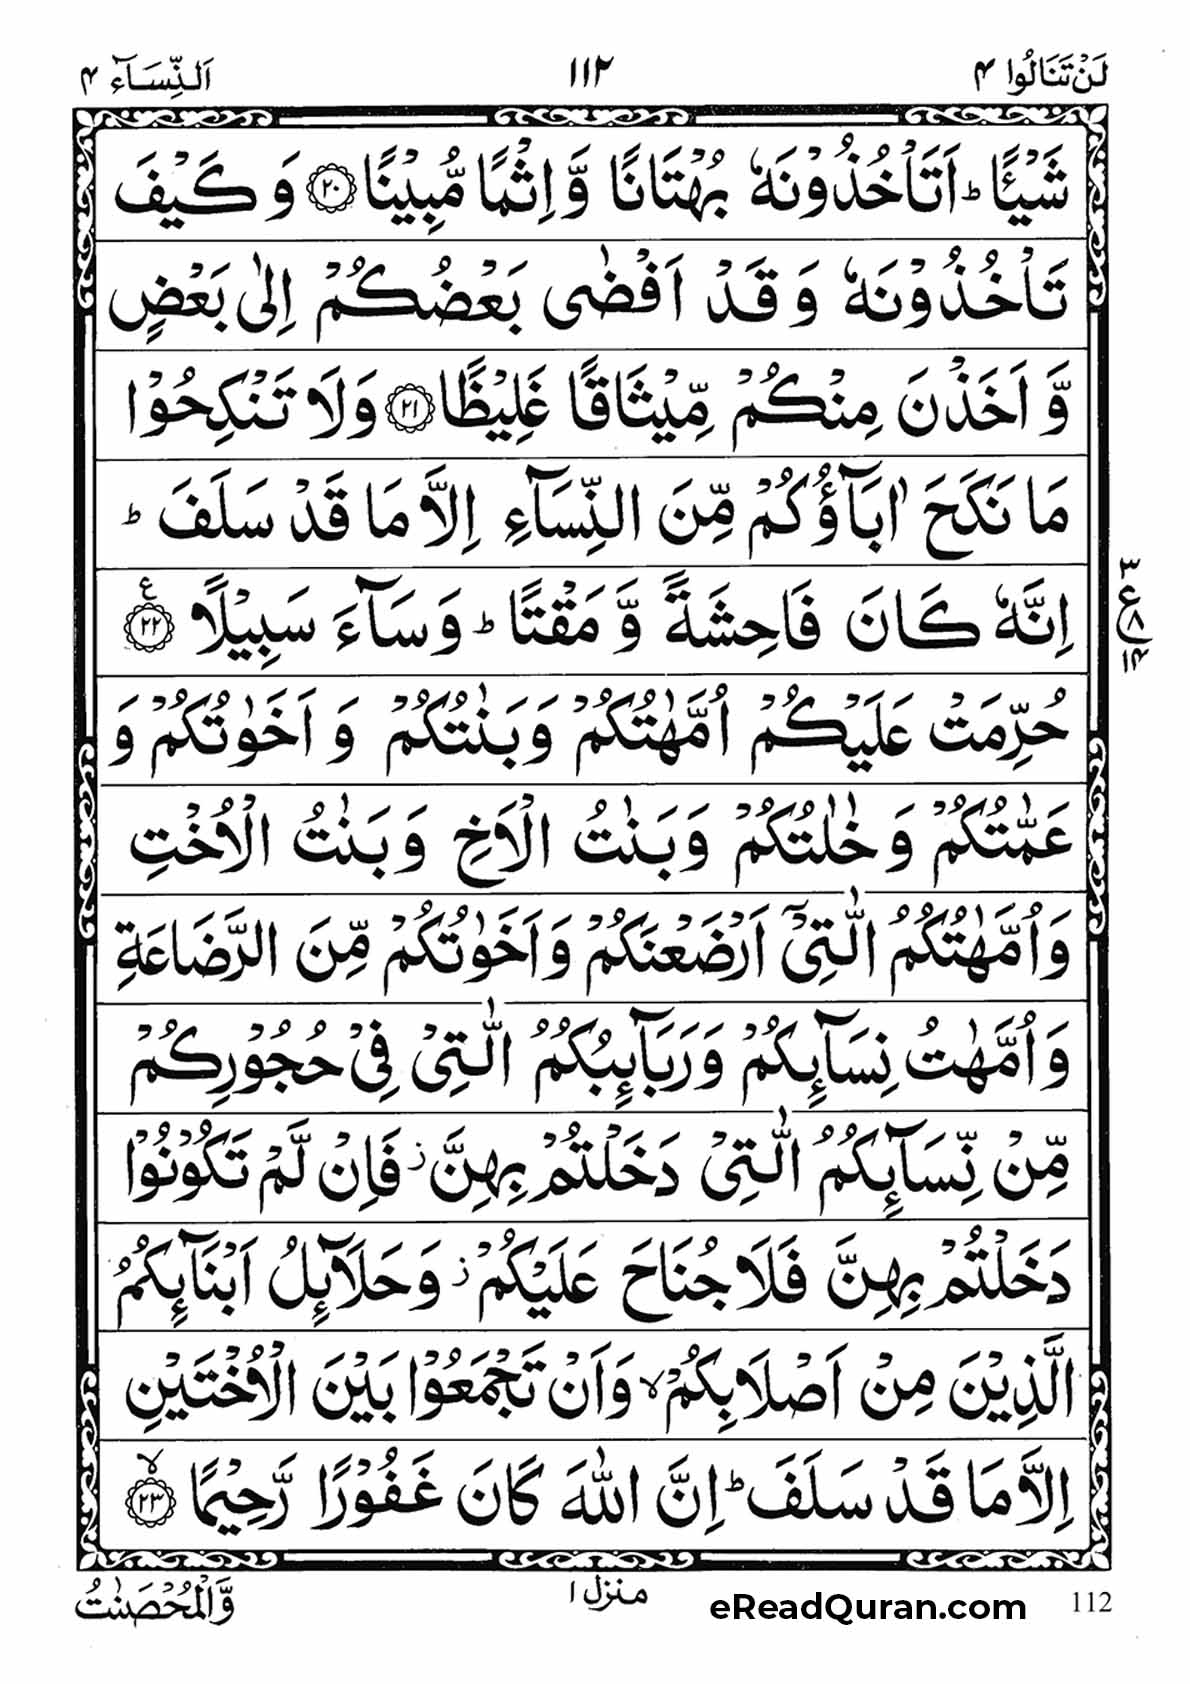 لَنْ تَنَالُوا ۴
۱۱۲
اَلنِّسَآء ۴
شَيْـًٔا ؕ اَتَاْخُذُوْنَهٗ بُهْتَانًا وَّ اِثْمًا مُّبِيْنًا ۝۲۰ وَ كَيْفَ
تَاْخُذُوْنَهٗ وَ قَدْ اَفْضٰى بَعْضُكُمْ اِلٰى بَعْضٍ
وَّ اَخَذْنَ مِنْكُمْ مِّيْثَاقًا غَلِيْظًا ۝۲۱ وَلَا تَنْكِحُوْا
مَا نَكَحَ اٰبَآؤُكُمْ مِّنَ النِّسَآءِ اِلَّا مَا قَدْ سَلَفَ ؕ
اِنَّهٗ كَانَ فَاحِشَةً وَّ مَقْتًا ؕ وَ سَآءَ سَبِيْلًا ۝۲۲ ع
۳
ع ۸
۱۴
حُرِّمَتْ عَلَيْكُمْ اُمَّهٰتُكُمْ وَ بَنٰتُكُمْ وَ اَخَوٰتُكُمْ وَ
عَمّٰتُكُمْ وَ خٰلٰتُكُمْ وَ بَنٰتُ الْاَخِ وَ بَنٰتُ الْاُخْتِ
وَ اُمَّهٰتُكُمُ الّٰتِيْۤ اَرْضَعْنَكُمْ وَ اَخَوٰتُكُمْ مِّنَ الرَّضَاعَةِ
وَ اُمَّهٰتُ نِسَآىِٕكُمْ وَ رَبَآىِٕبُكُمُ الّٰتِيْ فِيْ حُجُوْرِكُمْ
مِّنْ نِّسَآىِٕكُمُ الّٰتِيْ دَخَلْتُمْ بِهِنَّ ؗ فَاِنْ لَّمْ تَكُوْنُوْا
دَخَلْتُمْ بِهِنَّ فَلَا جُنَاحَ عَلَيْكُمْ ؗ وَ حَلَآىِٕلُ اَبْنَآىِٕكُمُ
الَّذِيْنَ مِنْ اَصْلَابِكُمْ ۙ وَ اَنْ تَجْمَعُوْا بَيْنَ الْاُخْتَيْنِ
اِلَّا مَا قَدْ سَلَفَ ؕ اِنَّ اللّٰهَ كَانَ غَفُوْرًا رَّحِيْمًا ۝۲۳ ۙ
وَّالْمُحْصَنٰتُ
منزل ۱
eReadQuran.com
112